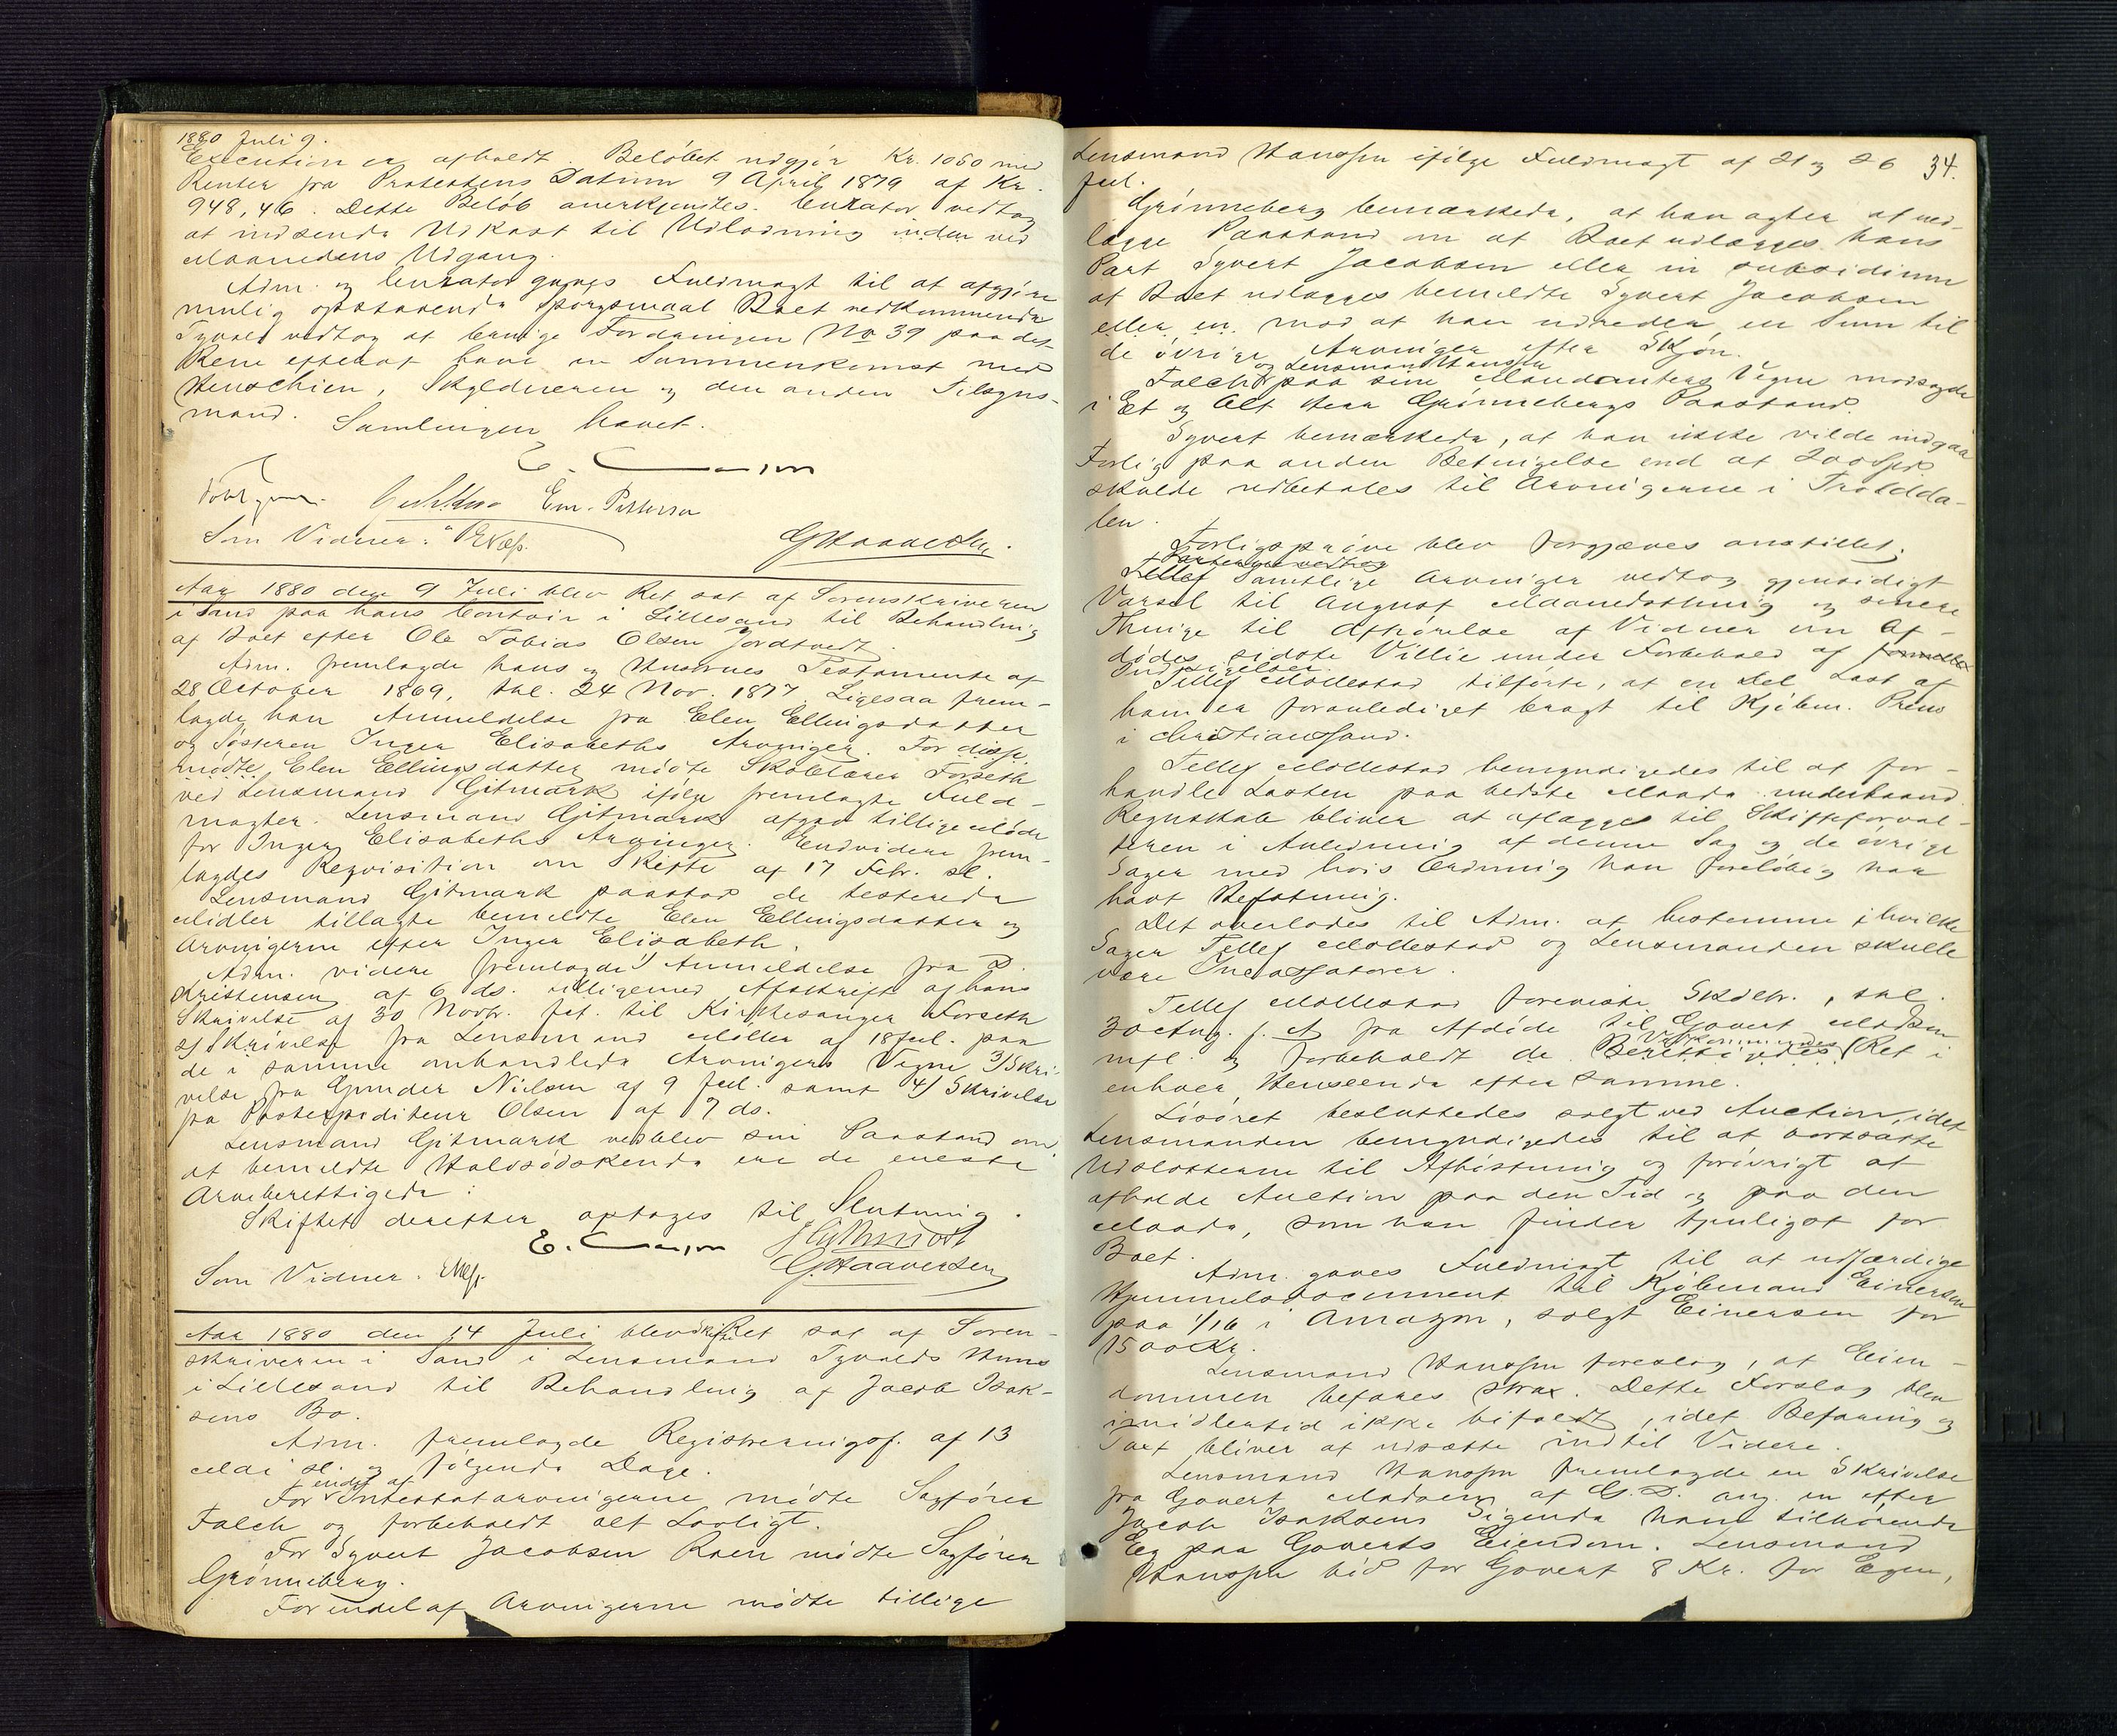 1880 Juli 9.
Execution er afholdt. Beløbet udgjør Kr. 1050 med
Renter fra Protestens Datum 9 April 1879 af Kr.
948,46. Dette Beløb anerkjendtes. Curator vedtog
at indsende Udkast til Udlodning inden ved
Maanedens Udgang.
Adm. og Curator gaves Fuldmagt til at afgjøre
mulig opstaaende Spørgsmaal Boet vedkommende
Tyvald vedtog at bringe Fordringen No 39 paa det
Rene efterat have en Sammenkomst med
Henschien, Skyldneren og den anden Tilsyns-
mand. Samlingen hævet.
E.
Em. Petterson
Som Vidner:
G Haaversen.
Aar 1880 den 9 Juli blev Ret sat af Sorenskriveren
i Sand paa hans Contoir i Lillesand til Behandling
af Boet efter Ole Tobias Olsen Jordtvedt.
Adm. fremlagde hans og Hustrues Testamente af
28 October 1869, thl. 24 Nov. 1877. Ligesaa frem-
lagde han Anmeldelse fra Elen Ellingsdatter
og Søsteren Inger Elisabeths Arvinger. For disse
mødte Elen Ellingsdatter mødte Skolelærer Forseth
ved Lensmand Gitmark ifølge fremlagte Fuld-
magter. Lensmand Gitmark afgav tillige Møde
for Inger Elisabeths Arvinger. Endvidere frem-
lagdes Reqvisition om Skifte af 17 Febr. sl.
Lensmand Gitmark paastod de testerede
Midler tillagte bemeldte Elen Ellingsdatter og
Arvingerne efter Inger Elisabeth.
Adm. videre fremlagde 1) Anmeldelse fra D.
Kristensen af 6 ds. tilligemed Afskrift af hans
Skrivelse af 30 Novbr. f.A. til Kirkesanger Forseth
2) Skrivelse fra Lensmand Møller af 18 Jul. paa
de i samme omhandlede Arvingers Vegne 3) Skri-
velse fra Gunder Nielsen af 9 Jul. samt 4) Skrivelse
fra Postexpediteur Olsen af 7 ds.
Lensmand Gitmark vedblev sin Paastand om
at bemeldte Halvsødskende ere de eneste
Arveberettigede:
Skiftet derefter optoges til Slutning.
E.
Som Vidner.
G. Haaversen
Aar 1880 den 14 Juli blev Skifteret sat af Soren-
skriveren i Sand i Lensmand Tyvalds Huus
i Lillesand til Behandling af Jacob Isak-
sens Bo.
Adm. fremlagde Registreringsf. af 13
Mai sl. og følgende Dage.
For endel af Intestatarvingerne mødte Sagfører
Falch og forbeholdt alt Lovligt.
For Syvert Jacobsen Roen mødte Sagfører
Grønneberg.
For endel af Arvingerne mødte tillige
34.
Lensmand Hanssen ifølge Fuldmagt af 21 og 26
Jul.
Grønneberg bemærkede, at han agter at ned-
lægge Paastand om at Boet udlægges hans
Part Syvert Jacobsen eller in subsidium
at Boet udlægges bemeldte Syvert Jacobsen
eller en. mod at han udreder en Sum til
de øvrige Arvinger efter Skjøn.
Falch og Lensmand Hanssen paa sine Mandanters Vegne modsagde
i Et og Alt Herr Grønnebergs Paastand.
Syvert bemærkede, at han ikke vilde indgaa
Forlig paa anden Betingelse end at 200 Spd
skulde udbetales til Arvingerne i Troldda-
len.
Forligsprøve blev forgjæves anstillet.
Samtlige Arvinger vedtog gjensidigt
Varsel til August Maanedsthing og senere
Thinge til Afhørelse af Vidner om Af-
dødes sidste Villie under Forbehold af
Indsigelser.
Tellef Mollestad tilførte, at en Del Last af
ham er foranlediget bragt til Kjøbm. Preus
i Christianssand.
Tellef Mollestad bemyndigedes til at for-
handle Lasten paa bedste Maade underhaand.
Regnskab bliver at aflægges til Skifteforval-
teren i Anledning af denne Sag og de øvrige
Sager med hvis Ordning han foreløbig har
havt Befatning.
Det overlodes til Adm. at bestemme i hvilke
Sager Tellef Mollestad og Lensmanden skulle
være Incassatorer.
Tellef Mollestad foreviste Skdbr., thl.
30 Aug. f. A fra Afdøde til Govert Madsen
mfl. og forbeholdt de Vedkommendes Ret i
enhver Henseende efter samme.
Løsøret besluttedes solgt ved Auction, idet
Lensmanden bemyndigedes til at bortsætte
Udslotterne til Afhøstning og forøvrigt at
afholde Auction paa den Tid og paa den
Maade, som han finder tjenligst for
Boet.
Adm. gaves Fuldmagt til at udfærdige
Hjemmelsdocument til Kjøbmand Einersen
paa 1/16 i Amazon, solgt Einersen for
1500 Kr.
Lensmand Hanssen foreslog, at Eien-
dommen befares strax. Dette Forslag blev
imidlertid ikke bifaldt, idet Befaring og
Taxt bliver at udsætte indtil Videre.
Lensmand Hanssen fremlagde en Skrivelse
fra Govert Madsen af G.D. ang. en efter
Jacob Isaksens Sigende ham tilhørende
Eg paa Goverts Eiendom. Lensmand
Hanssen bød for Govert 8 Kr. for Egen,